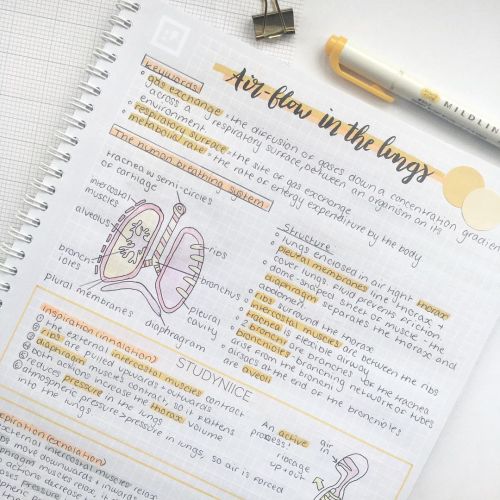 Air-flow in the lungs
keywords
° gas exchange - the diffusion of gases down a concentration gradient
across a respiratory surface, between an organism an its
environment.
° respiratory surface - the site of gas exchange
° metabolic rate - the rate of energy expenditure by the body
The human breathing system
trachea w semi-circles
of cartilage
intercostal
muscles
alveolus
bronch-
ioles
plural membranes
diaphragm
ribs
bronchus
pleural
cavity
Structure
° lungs enclosed in air tight thorax
° pleural membranes line thorax +
cover lungs to prevent friction.
° diaphragm separates the thorax and
abdomen.
° ribs surround the thorax
° intercostal muscles are between the ribs
° trachea is flexible airway
° 2 bronchi are branches of the trachea
° bronchioles are branching network of tubes
arise from the bronchi
° airsacs at the end of the bronchioles
are alveoli
inspiration (inhalation)
① the external intercostal muscles contract
② ribs are pulled upwards + outwards
③ diaphragm muscles contract, so it flattens
④ both actions increase the thorax volume
⑤ reduces pressure in the lungs
⑥ atmospheric pressure > pressure in lungs, so air is forced
into the lungs
STUDYNIICE
An active
process
air
in
ribcage
up + out
expiration (exhalation)
external intercostal muscles relax
ribs move downwards + inwards
MILDLIN